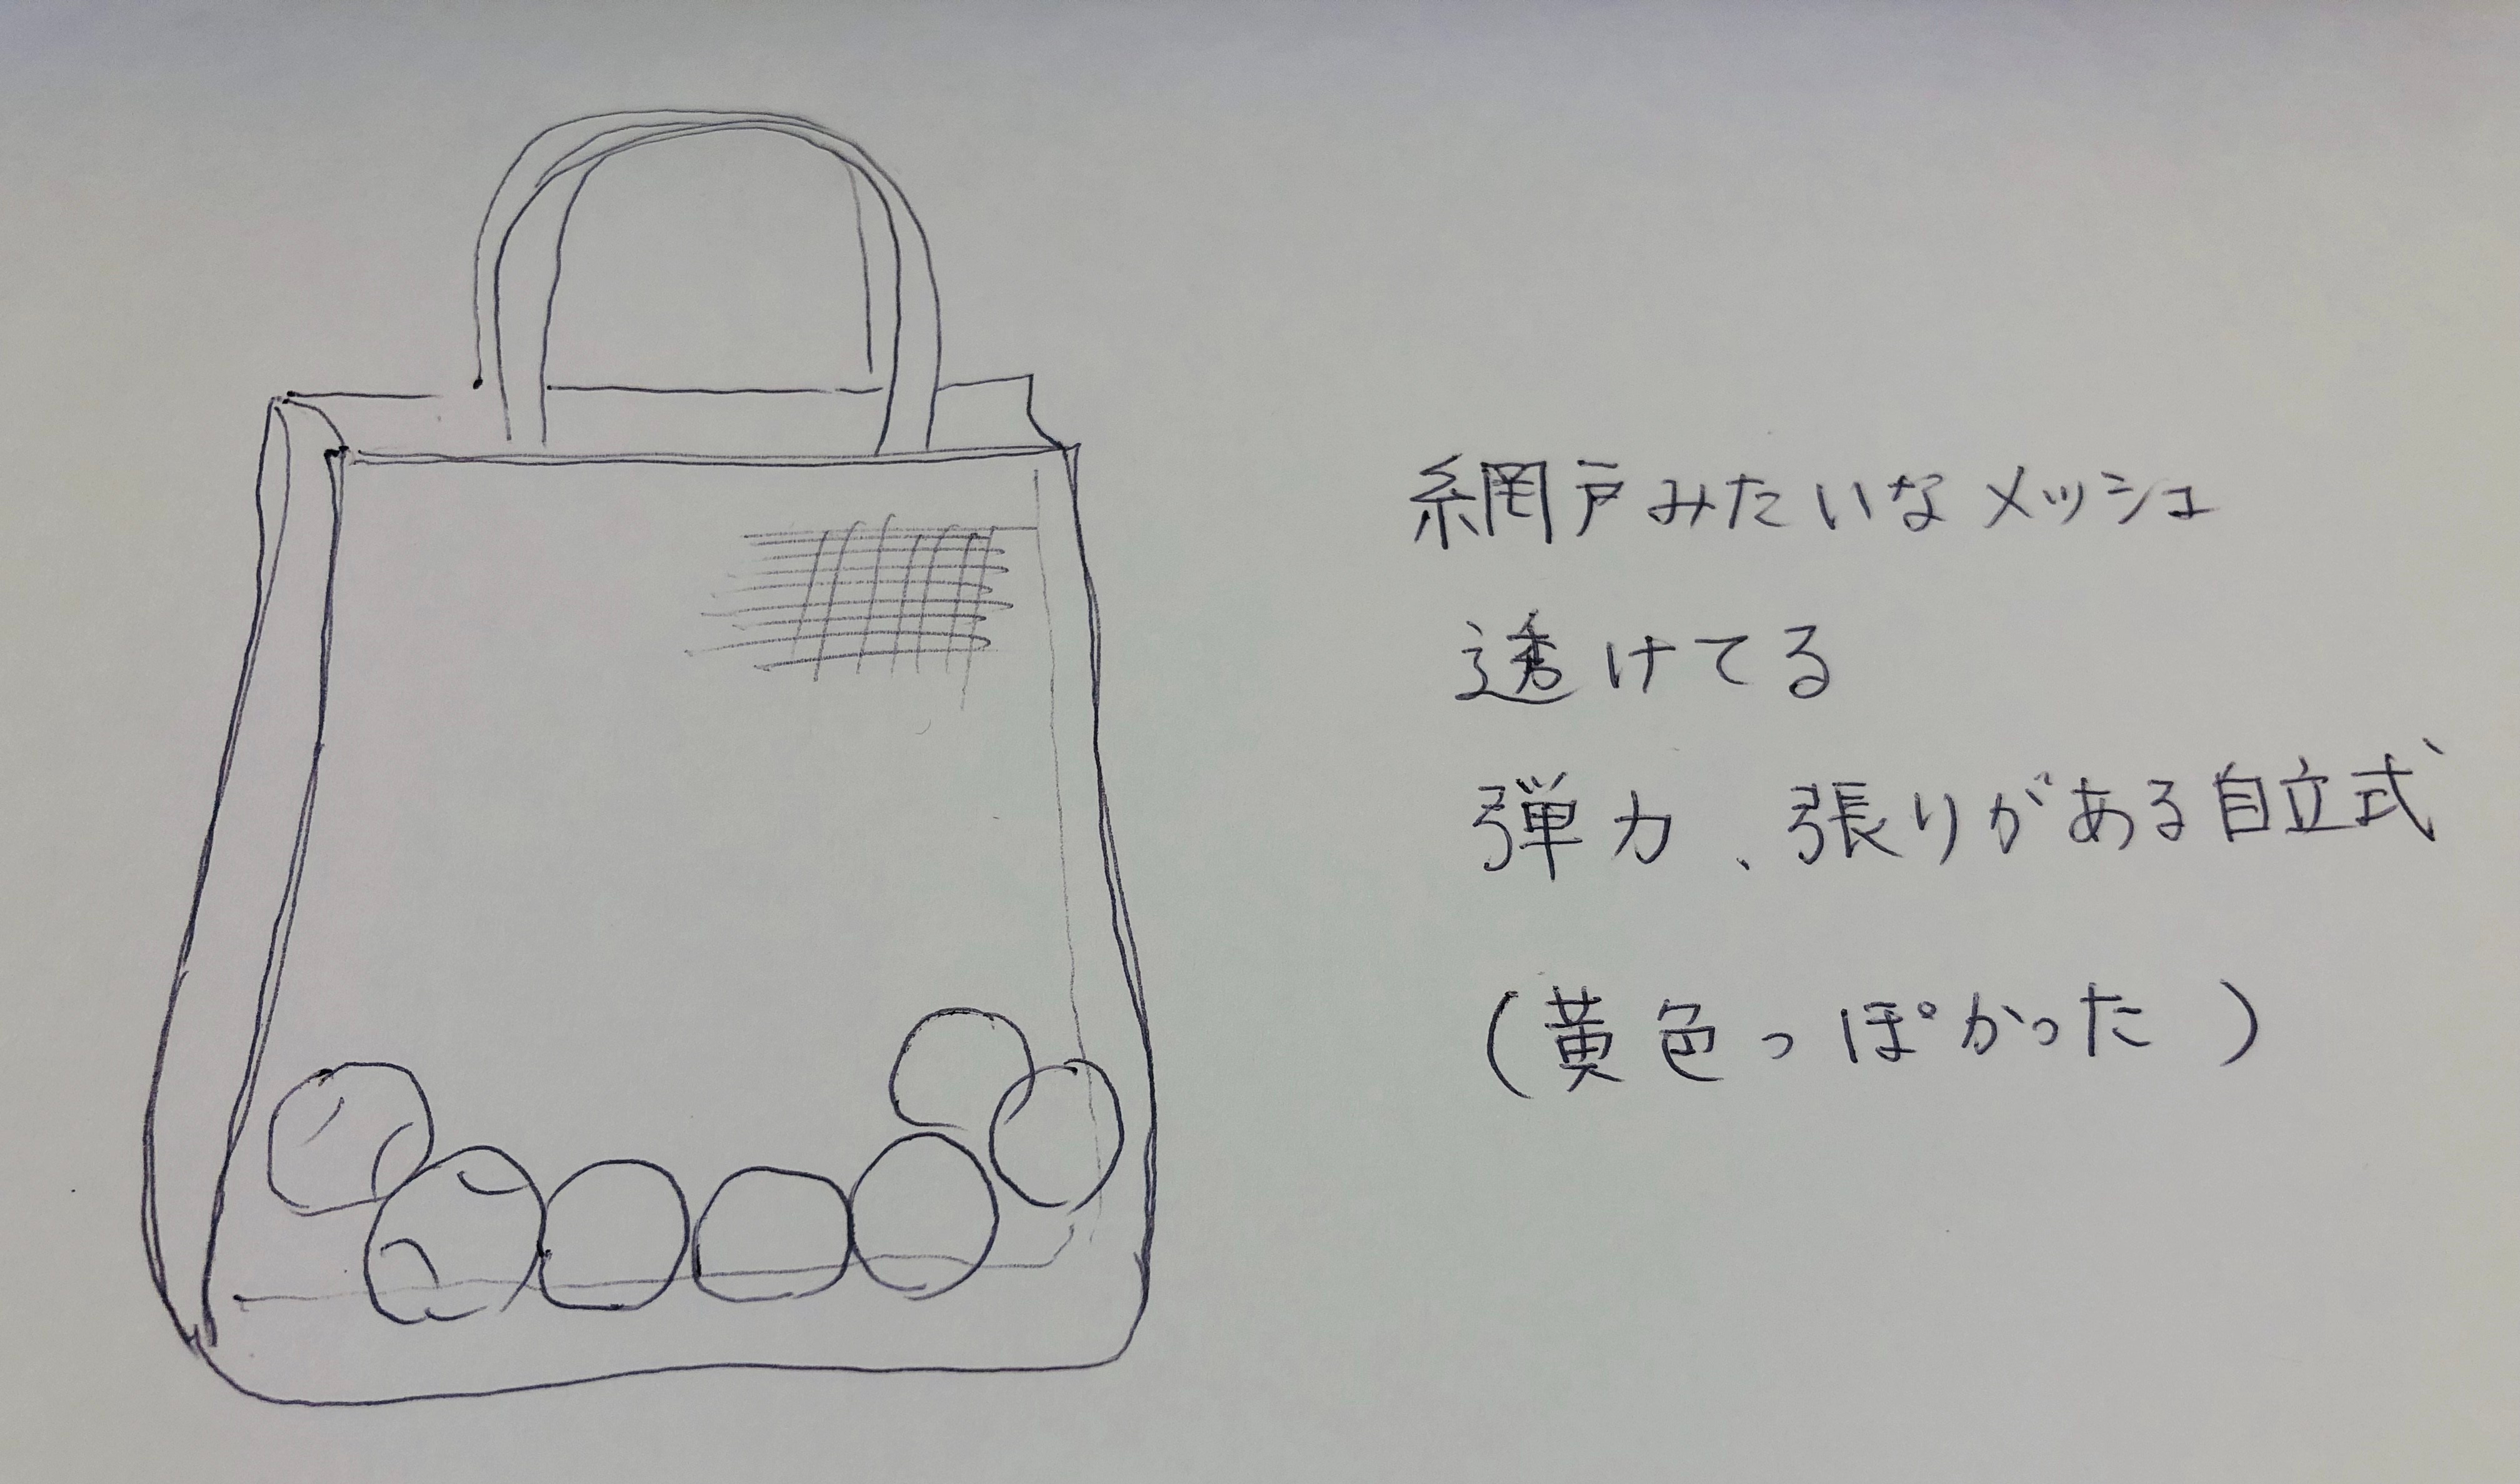 網戸みたいなメッシュ
透けてる
弾力、張りがある自立式
(黄色っぽかった)